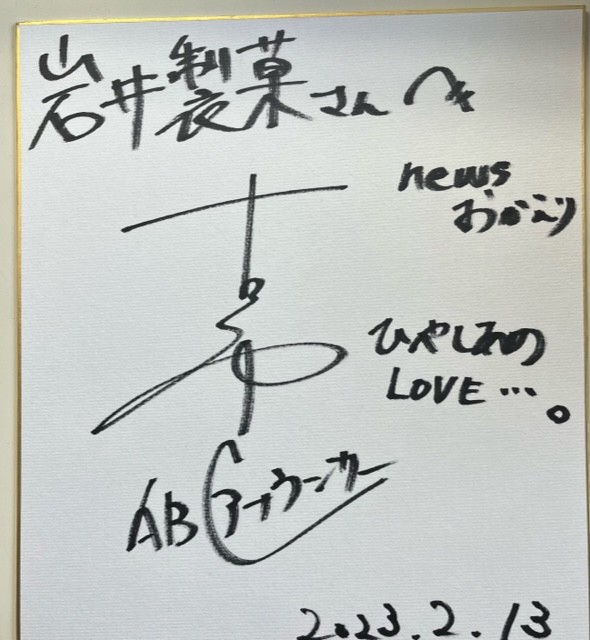 岩井製菓さんへ
news
おかえり
ひやしみの
LOVE…。
ABCアナウンサー
2023.2.13